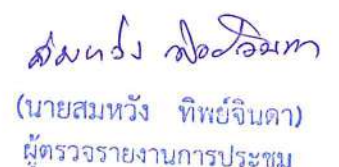 สมหวัง ทิพย์จินดา
(นายสมหวัง ทิพย์จินดา)
ผู้ตรวจรายงานการประชุม